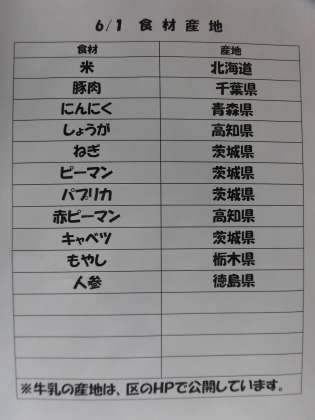 6/1 食材産地
食材 産地
米 北海道
豚肉 千葉県
にんにく 青森県
しょうが 高知県
ねぎ 茨城県
ピーマン 茨城県
パプリカ 茨城県
赤ピーマン 高知県
キャベツ 茨城県
もやし 栃木県
人参 徳島県
※牛乳の産地は、区のHPで公開しています。